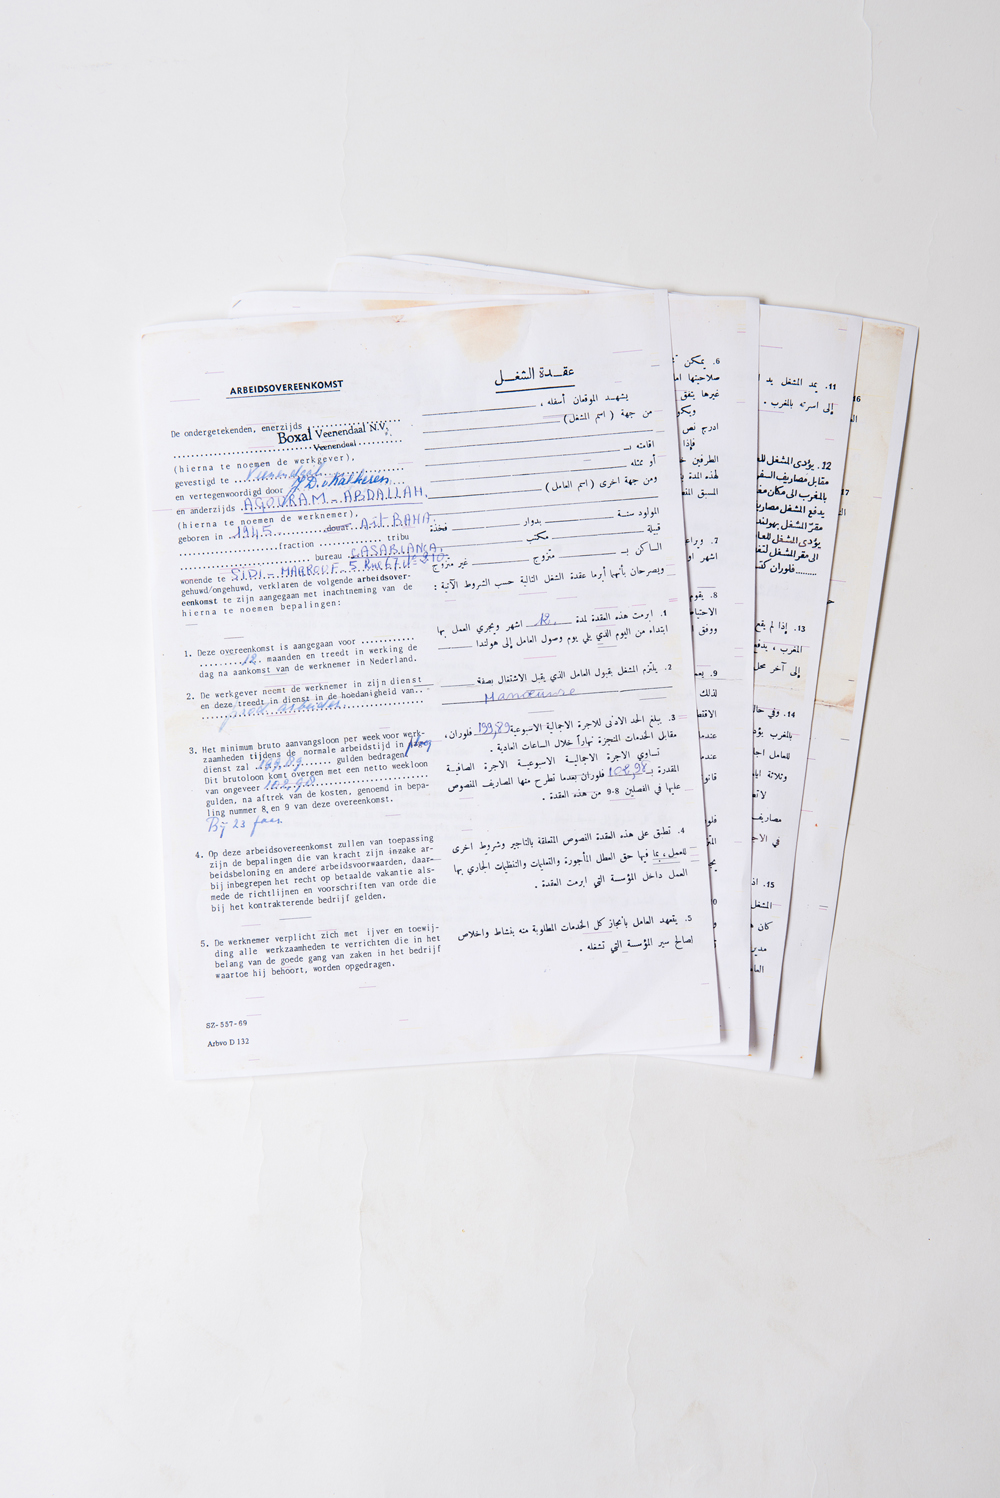 ARBEIDSOVEREENKOMST
De ondergetekenden, enerzijds
Boxal Veenendaal N.V.
Veenendaal
(hierna te noemen de werkgever),
gevestigd te Veenendaal
en vertegenwoordigd door
en anderzijds AGOURAM - ABDALLAH.
(hierna te noemen de werknemer),
geboren in 1945 douar Ait BAHA
fraction tribu
bureau CASABLANCA,
wonende te SIDI - MAAROUF. 5
gehuwd/ongehuwd, verklaren de volgende arbeidsover-
eenkomst te zijn aangegaan met inachtneming van de
hierna te noemen bepalingen:
1. Deze overeenkomst is aangegaan voor
12 maanden en treedt in werking de
dag na aankomst van de werknemer in Nederland.
2. De werkgever neemt de werknemer in zijn dienst
en deze treedt in dienst in de hoedanigheid van
prod. arbeider
3. Het minimum bruto aanvangsloon per week voor werk-
zaamheden tijdens de normale arbeidstijd in ploeg
dienst zal 139,89 gulden bedragen.
Dit brutoloon komt overeen met een netto weekloon
van ongeveer 108,98
gulden, na aftrek van de kosten, genoemd in bepa-
ling nummer 8, en 9 van deze overeenkomst.
Bij 23 jaar
4. Op deze arbeidsovereenkomst zullen van toepassing
zijn de bepalingen die van kracht zijn inzake ar-
beidsbeloning en andere arbeidsvoorwaarden, daar-
bij inbegrepen het recht op betaalde vakantie als-
mede de richtlijnen en voorschriften van orde die
bij het kontrakterende bedrijf gelden.
5. De werknemer verplicht zich met ijver en toewij-
ding alle werkzaamheden te verrichten die in het
belang van de goede gang van zaken in het bedrijf
waartoe hij behoort, worden opgedragen.
SZ-557-69
Arbvo D 132
عقدة الشغل
يشهد الموقعان أسفله ،
من جهة ( اسم المشغل )
اقامته بـ
أو ممثله
ومن جهة اخرى ( اسم العامل )
المولود سنة بدوار فخذة
قبيلة مكتب
الساكن بـ متزوج غير متزوج
ويصرحان بأنهما أبرما عقدة الشغل التالية حسب الشروط الآتية :
1. ابرمت هذه العقدة لمدة 12 اشهر ويجري العمل بها
ابتداء من اليوم الذي يلي يوم وصول العامل إلى هولندا
2. يلتزم المشغل بقبول العامل الذي يقبل الاشتغال بصفة
Manœuvre
3. يبلغ الحد الادنى للاجرة الاجمالية الاسبوعية 139,89 فلوران،
مقابل الخدمات المنجزة نهارا خلال الساعات العادية .
تساوي الاجرة الاجمالية الاسبوعية الاجرة الصافية
المقدرة بـ 108,98 فلوران بعدما تطرح منها المصاريف المنصوص
عليها في الفصلين 8-9 من هذه العقدة .
4. تطبق على هذه العقدة النصوص المتعلقة بالتاجير وشروط اخرى
للعمل ، بما فيها حق العطل المأجورة والتعليمات والتنظيمات الجاري بها
العمل داخل المؤسسة التي ابرمت العقدة .
5. يتعهد العامل بانجاز كل الخدمات المطلوبة منه بنشاط واخلاص
لصالح سير المؤسسة التي تشغله .
6. يمكن
صلاحيتها
غيرها يتفق
ادرج نص
فإذا
الطرفين
لهذه المدة
المسبق
7.
اشهر او
8. يقوم
ووفق
9.
لذلك
11. يمد المشغل يد
إلى اسرته بالمغرب .
12. يؤدى المشغل
مقابل مصاريف
بالمغرب الى مكان
يدفع المشغل
مقر المشغل بهولندا
يؤدى المشغل
الى مقر المشغل
فلوران
13. إذا لم يقع
المغرب ، يدفع
إلى آخر محل
14. وفي
بالمغرب
للعامل
وثلاثة
مصاريف
15. اذا
المشغل
كان
16
17